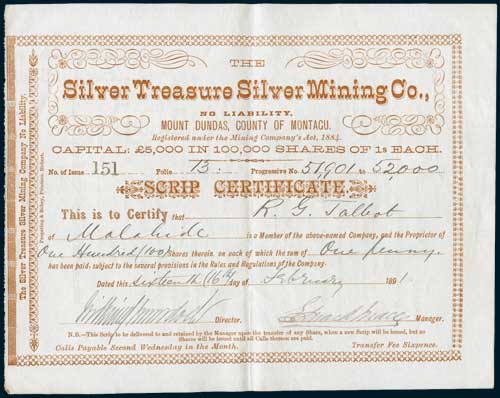 THE
Silver Treasure Silver Mining Co.,
NO LIABILITY,
MOUNT DUNDAS, COUNTY OF MONTAGU.
Registered under the Mining Company's Act, 1884.
CAPITAL: £5,000 IN 100,000 SHARES OF 1s EACH.
No. of Issue 151 Folio 13: Progressive No 51,901 to 52,000
SCRIP CERTIFICATE
This is to Certify that R. G. Talbot
of Malahide is a Member of the above-named Company, and the Proprietor of
One Hundred (100) Shares therein, on each of which the sum of One penny.
has been paid, subject to the several provisions in the Rules and Regulations of the Company.
Dated this sixteenth (16th) day of February 1891.
Director. Manager.
N.B.—This Scrip to be delivered to and retained by the Manager upon the transfer of any Share, when a new Scrip will be issued, but no
Shares will be issued until all Calls thereon are paid.
Calls Payable Second Wednesday in the Month. Transfer Fee Sixpence.
The Silver Treasure Silver Mining Company No Liability.